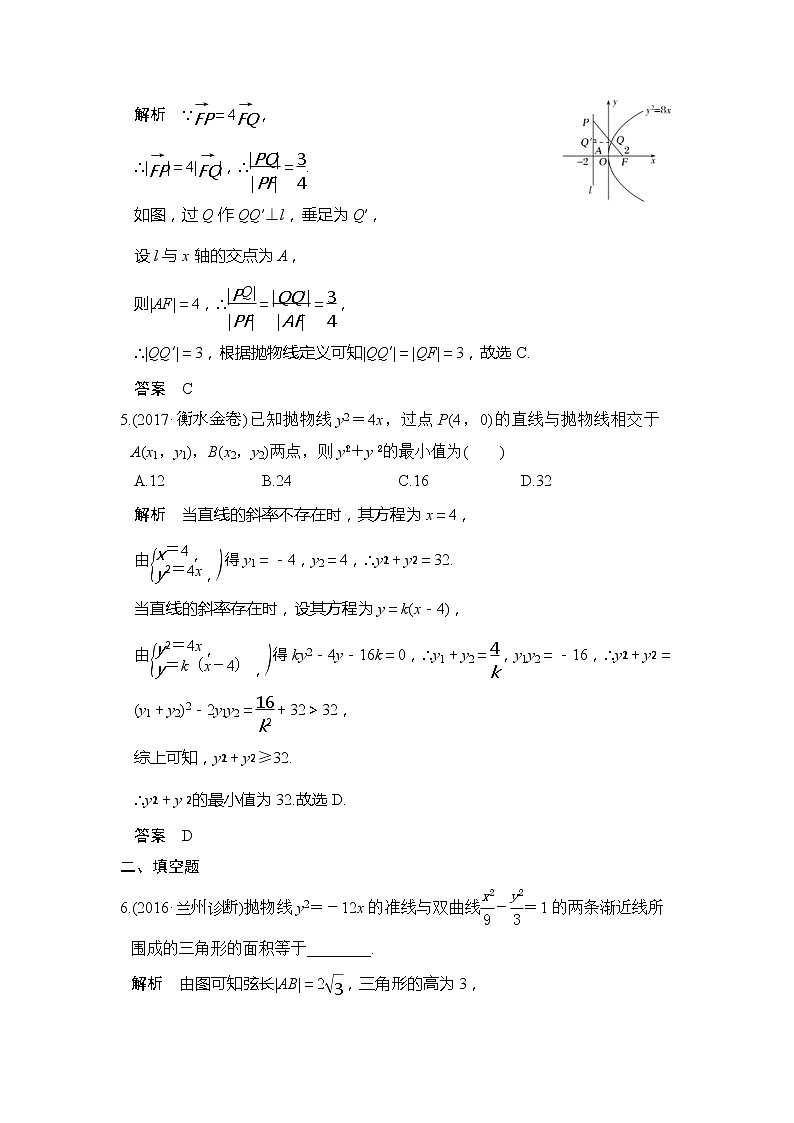 解析 ∵FP→＝4FQ→，
∴|FP→|＝4|FQ→|，∴|PQ|/|PF|＝3/4.
如图，过 Q 作 QQ′⊥l，垂足为 Q′，
设 l 与 x 轴的交点为 A，
则|AF|＝4，∴|PQ|/|PF|＝|QQ′|/|AF|＝3/4，
∴|QQ′|＝3，根据抛物线定义可知|QQ′|＝|QF|＝3，故选 C.
答案 C
y
y²=8x
P
Q′
Q
A
2
−2
O
F
x
l
5.(2017·衡水金卷)已知抛物线 y²＝4x，过点 P(4，0)的直线与抛物线相交于
A(x₁，y₁)，B(x₂，y₂)两点，则 y₁²＋y₂²的最小值为( )
A.12 B.24 C.16 D.32
解析 当直线的斜率不存在时，其方程为 x＝4，
由{x＝4，y²＝4x，)得 y₁＝－4，y₂＝4，∴y₁²＋y₂²＝32.
当直线的斜率存在时，设其方程为 y＝k(x－4)，
由{y²＝4x，y＝k（x－4），)得 ky²－4y－16k＝0，∴y₁＋y₂＝4/k，y₁y₂＝－16，∴y₁²＋y₂²＝
(y₁＋y₂)²－2y₁y₂＝16/k²＋32＞32，
综上可知，y₁²＋y₂²≥32.
∴y₁²＋y₂²的最小值为 32.故选 D.
答案 D
二、填空题
6.(2016·兰州诊断)抛物线 y²＝－12x 的准线与双曲线x²/9－y²/3＝1 的两条渐近线所
围成的三角形的面积等于________.
解析 由图可知弦长|AB|＝2√3，三角形的高为 3，